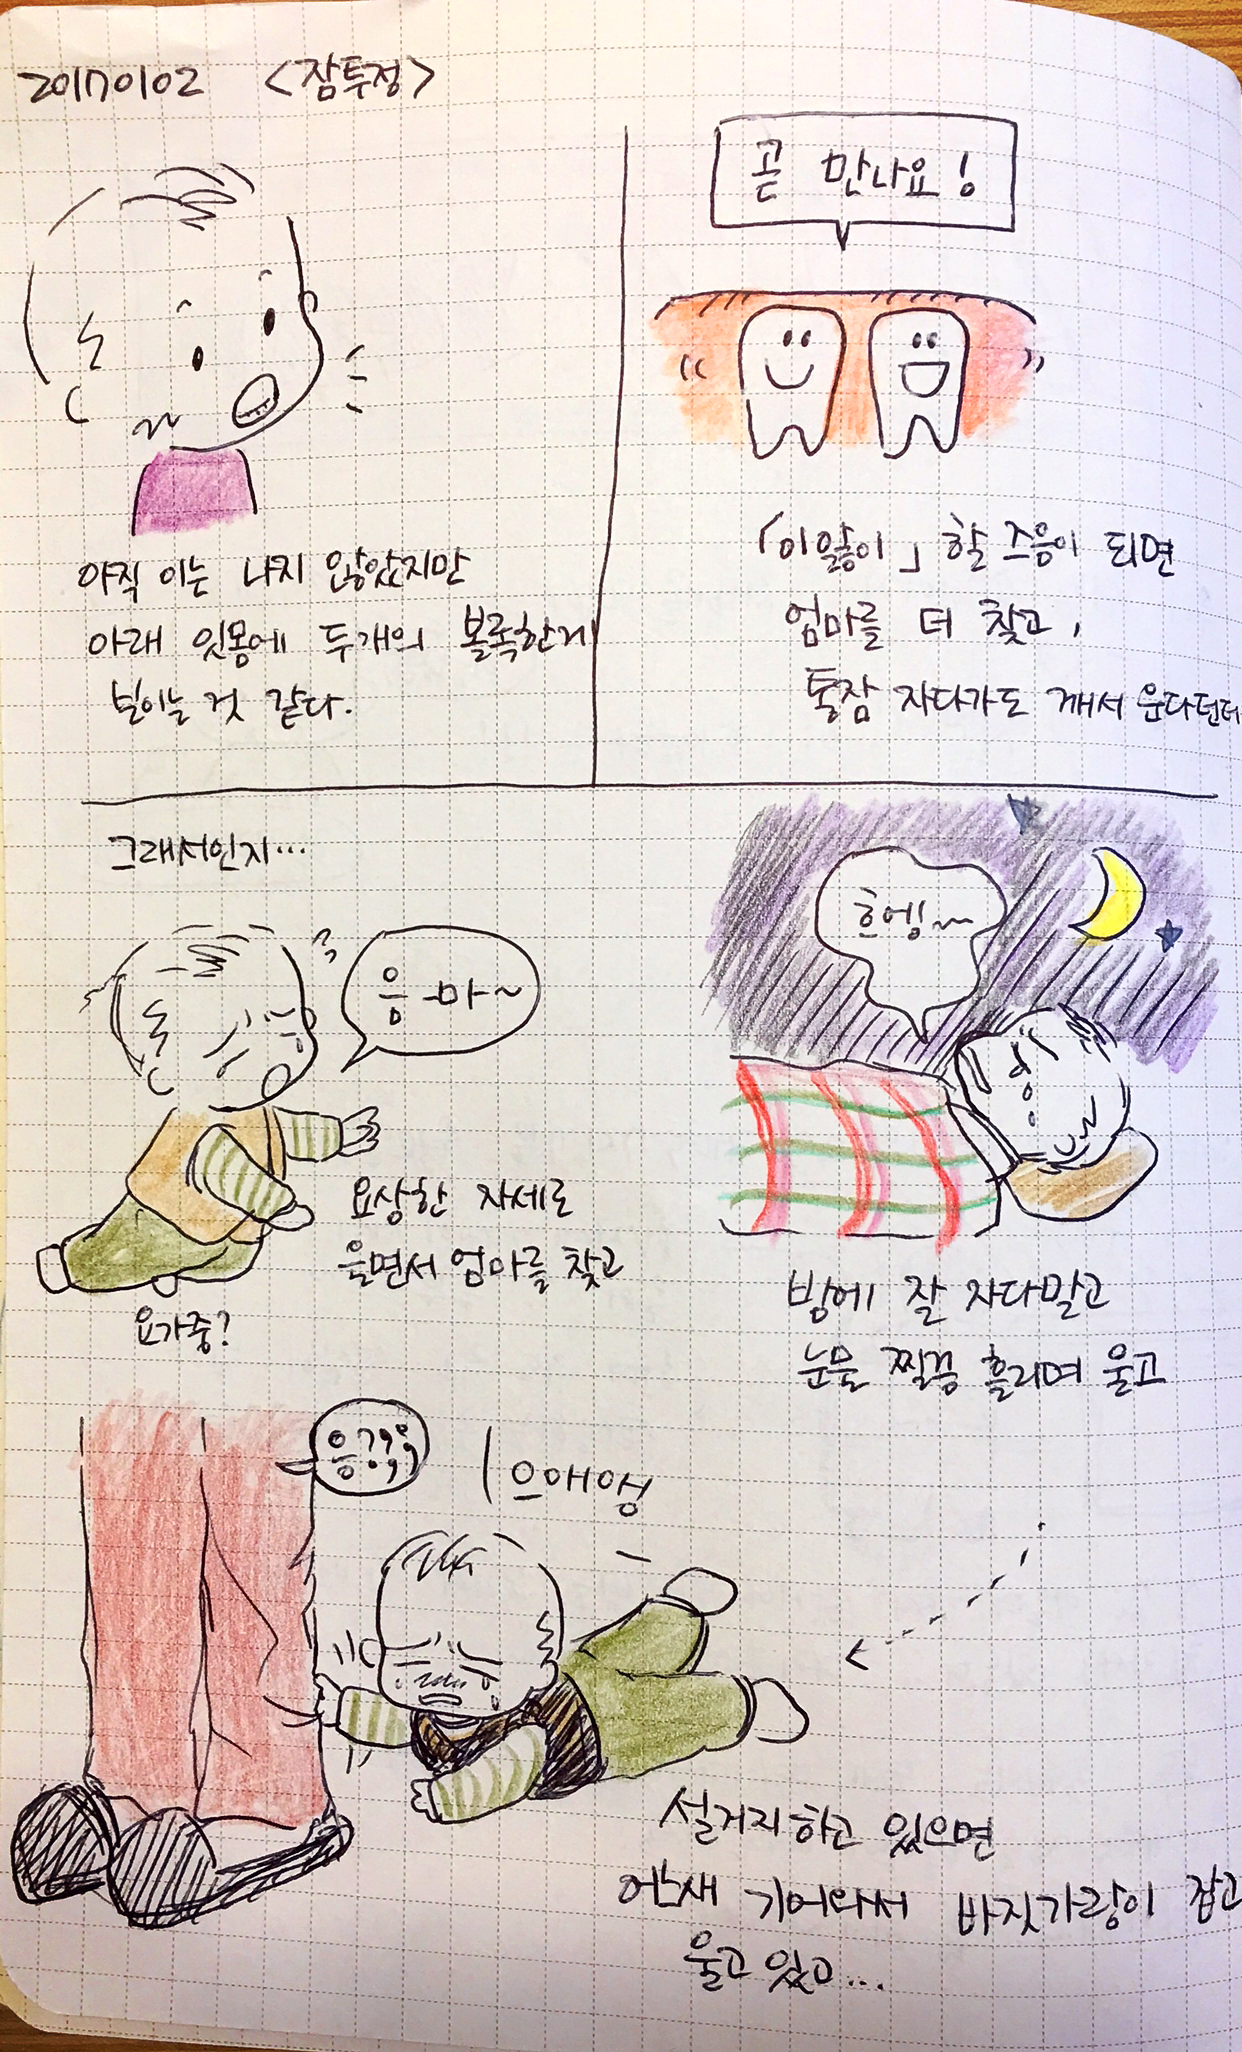 20170102 <잠투정>
아직 이는 나지 않았지만
아래 잇몸에 두개의 볼록한게
보이는 것 같다.
곧 만나요!
「이앓이」 할 즈음이 되면
엄마를 더 찾고,
통잠 자다가도 깨서 운다던데
그래서인지...
음-마~
요상한 자세로
울면서 엄마를 찾고
요가중?
흐엥~
밤에 잘 자다말고
눈물 찔끔 흘리며 울고
응?;;
으애앵
설거지하고 있으면
어느새 기어와서 바짓가랑이 잡고
울고 있고...